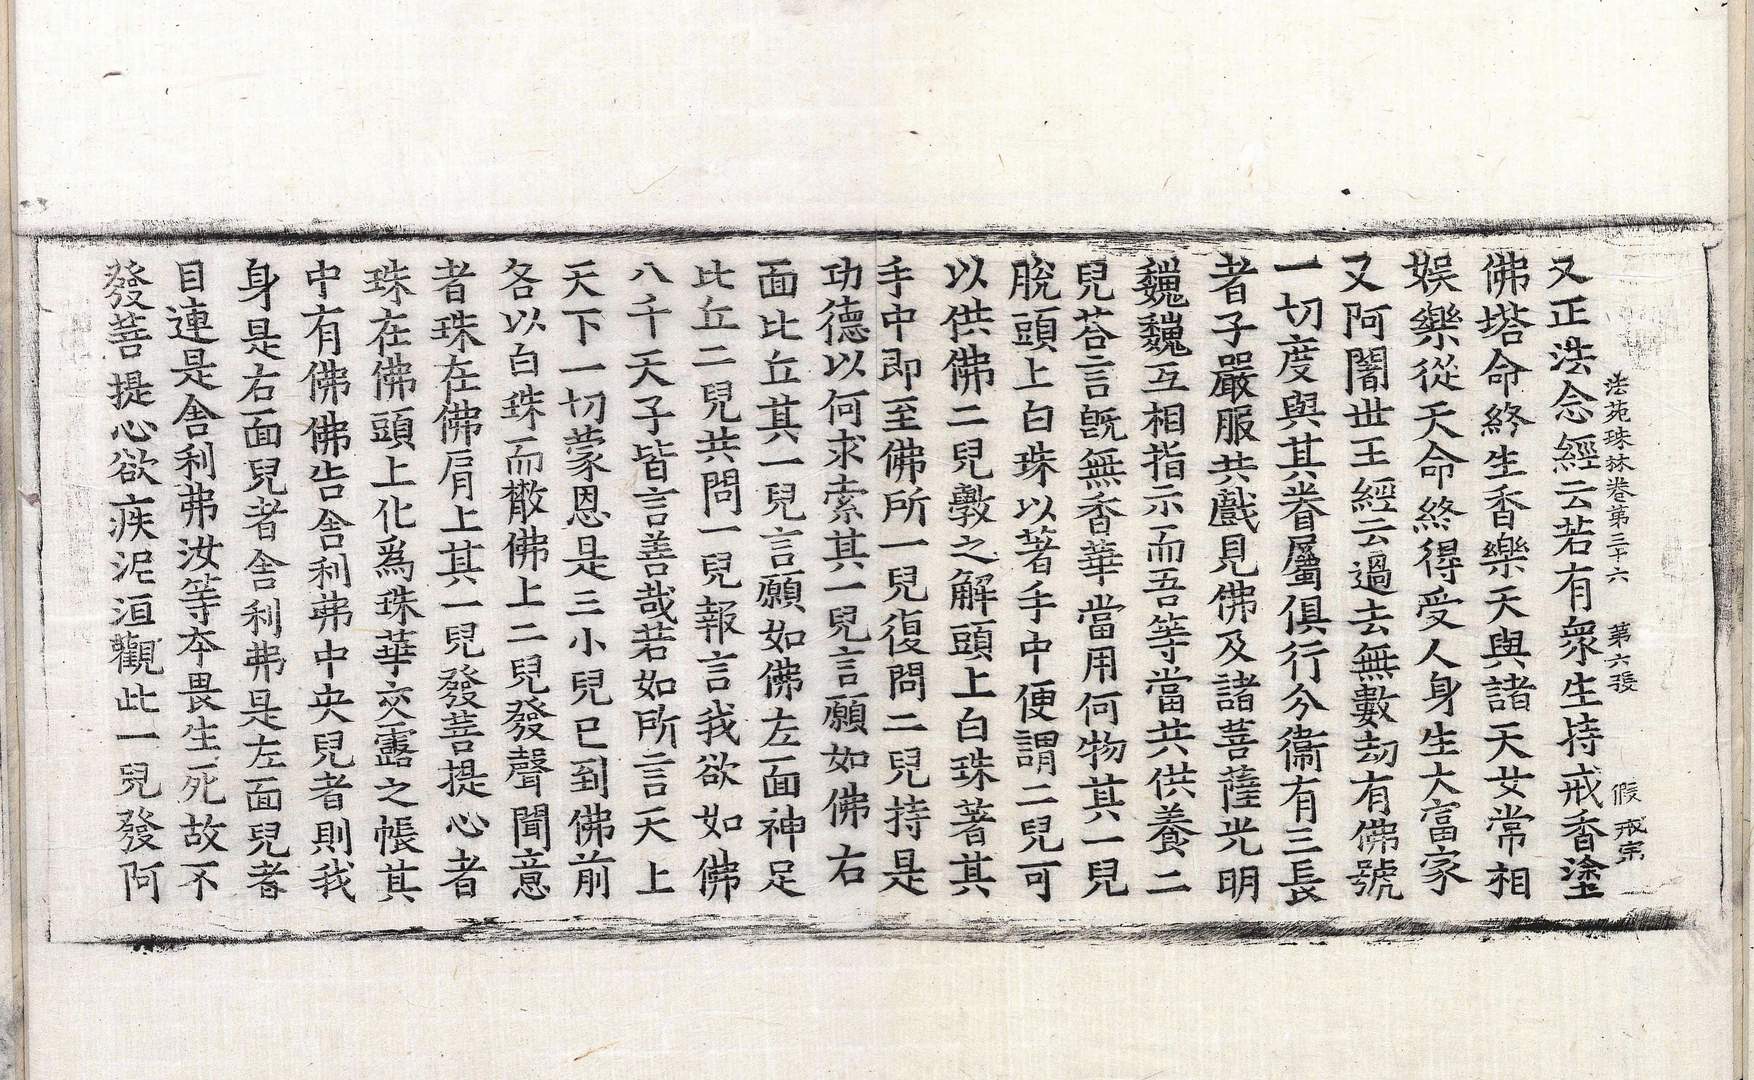 法苑珠林卷第三十六 第六張 假 戒宗
又正法念經云若有衆生持戒香塗
佛塔命終生香樂天與諸天女常相
娛樂從天命終得受人身生大富家
又阿闍世王經云過去無數劫有佛號
一切度與其眷屬俱行分衞有三長
者子嚴服共戲見佛及諸菩薩光明
巍巍互相指示而吾等當共供養二
兒荅言旣無香華當用何物其一兒
脫頭上白珠以著手中便謂二兒可
以供佛二兒斆之解頭上白珠著其
手中即至佛所一兒復問二兒持是
功德以何求索其一兒言願如佛右
面比丘其一兒言願如佛左面神足
比丘二兒共問一兒報言我欲如佛
八千天子皆言善哉若如所言天上
天下一切蒙恩是三小兒已到佛前
各以白珠而撒佛上二兒發聲聞意
者珠在佛肩上其一兒發菩提心者
珠在佛頭上化爲珠華交露之帳其
中有佛佛告舍利弗中央兒者則我
身是右面兒者舍利弗是左面兒者
目連是舍利弗汝等本畏生死故不
發菩提心欲疾泥洹觀此一兒發阿